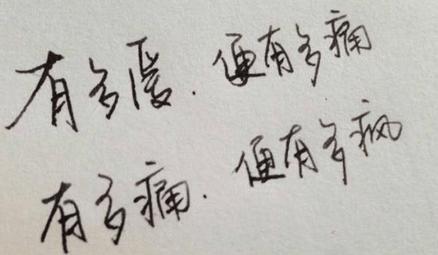 有多爱.便有多痛
有多痛.便有多疯